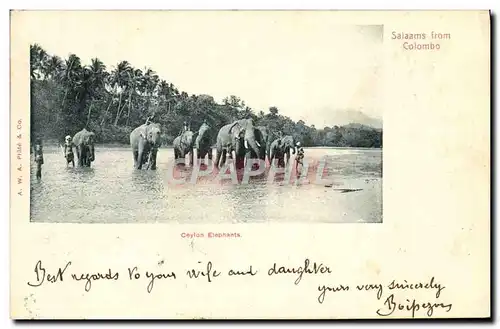 Salaams from
Colombo
A. W. A. Plâté & Co.
CPARAMA
Ceylon Elephants.
Best regards to your wife and daughter
yours very sincerely